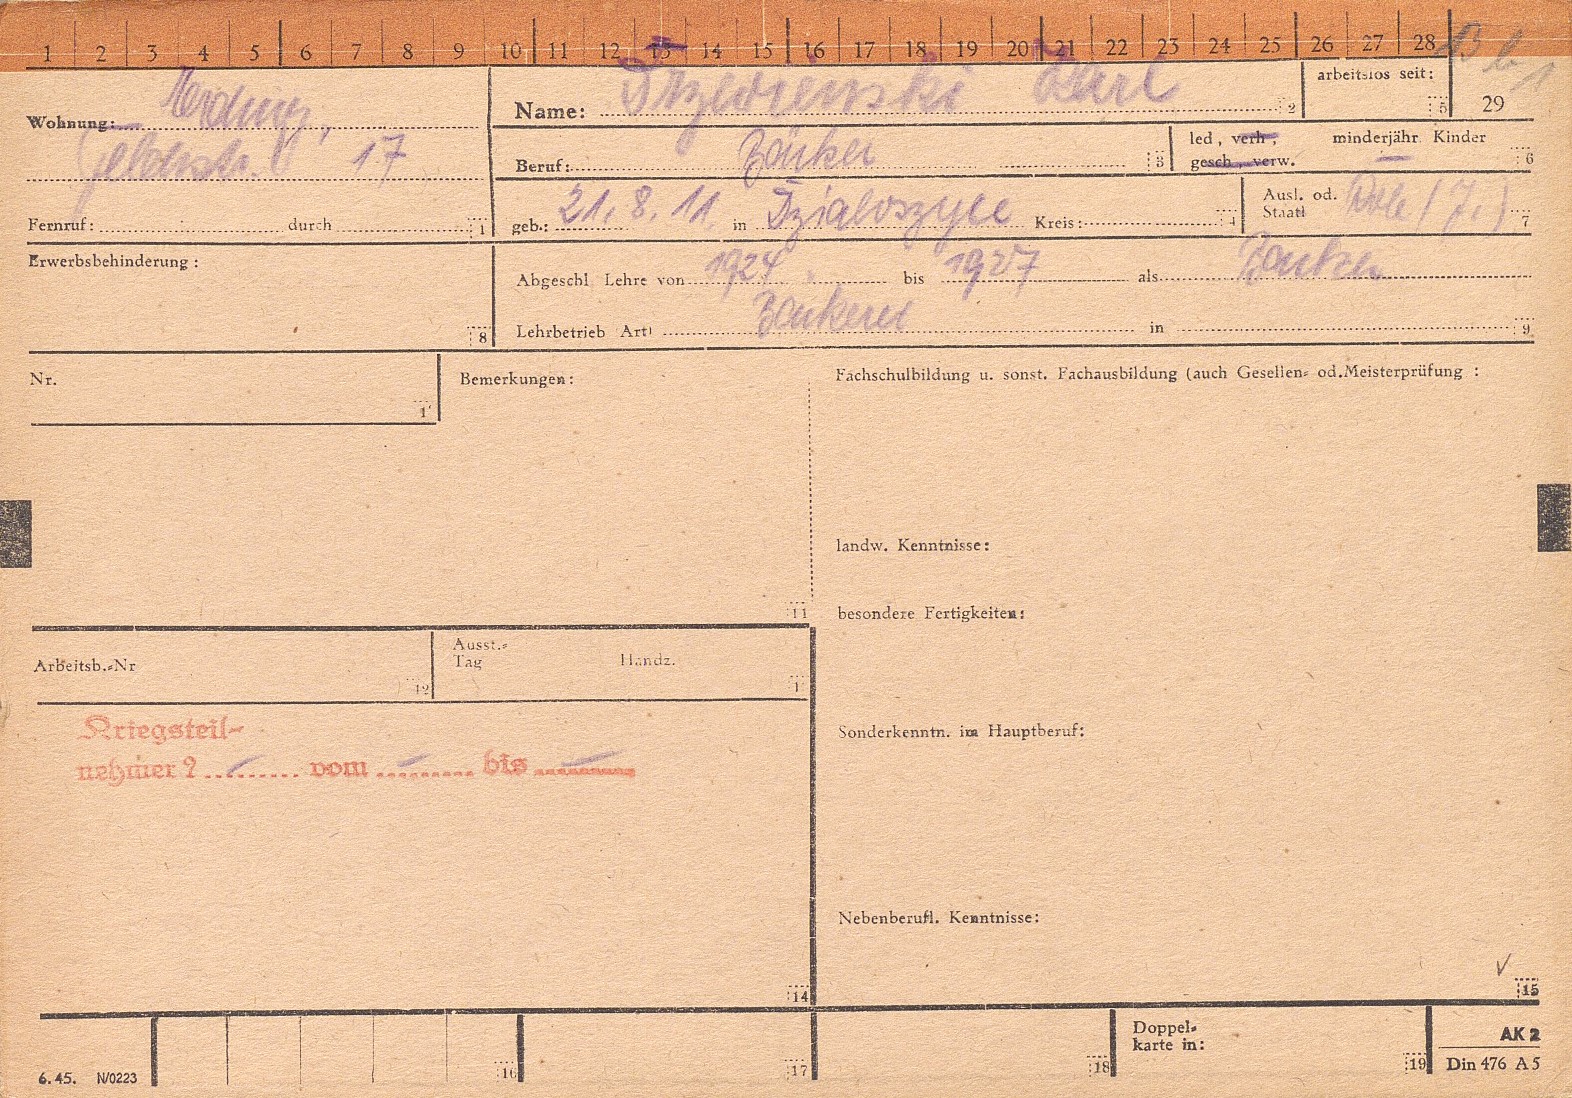 1 2 3 4 5 6 7 8 9 10 11 12 13 14 15 16 17 18 19 20 21 22 23 24 25 26 27 28
B b 1
29
arbeitslos seit:
5
Name: Trzewienski Karl
2
Wohnung:
Feldstr. 17
Beruf: Bäcker
3
led, verh,
gesch, verw.
minderjähr. Kinder
—
6
Fernruf: durch
1
geb.: 21. 8. 11. in Dzialoszyce Kreis:
4
Ausl. od.
Staatl Pole (J.)
7
Erwerbsbehinderung:
8
Abgeschl Lehre von 1924 bis 1927 als Bäcker
Lehrbetrieb Art) Bäckerei in
9
Nr.
1
Bemerkungen:
11
Fachschulbildung u. sonst. Fachausbildung (auch Gesellen- od.Meisterprüfung :
landw. Kenntnisse:
besondere Fertigkeiten:
Sonderkenntn. im Hauptberuf:
Nebenberufl. Kenntnisse:
15
Arbeitsb.-Nr
12
Ausst.-
Tag
Handz.
1
Kriegsteil-
nehmer? — vom — bis —
14
6.45. N/0223
16
17
18
Doppel-
karte in:
19
AK 2
Din 476 A 5